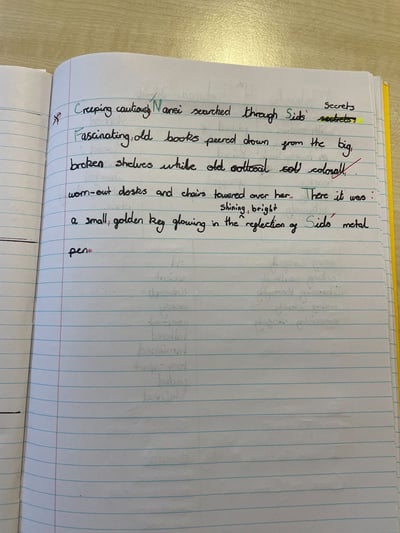 secrets
Creeping cautiously Nanci searched through Sids' secrets,
Fascinating, old books peered down from the big,
broken shelves while old collosal col colosall
worn-out desks and chairs towered over her. There it was:
shining, bright
a small, golden key glowing in the ^ reflection of Sids' metal
pen.